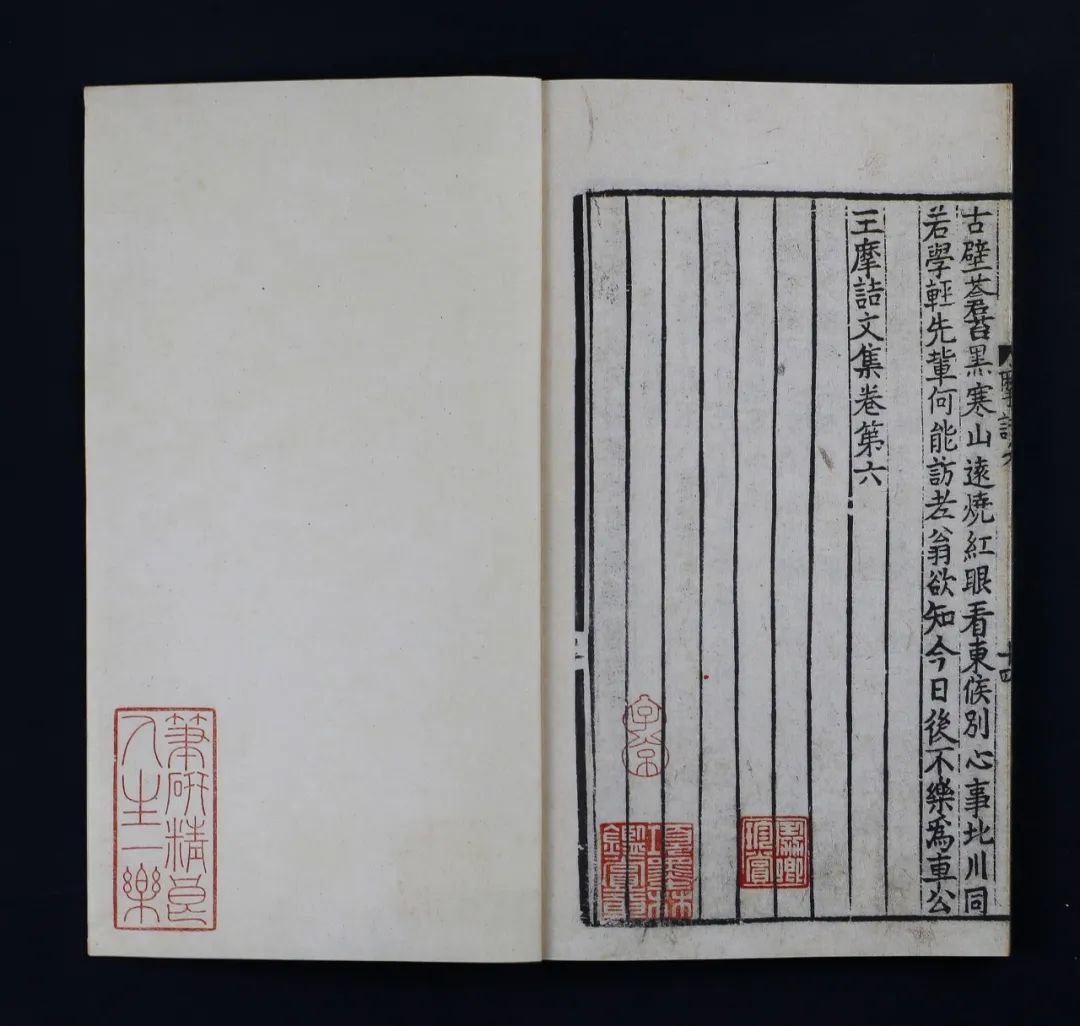 摩詰六
十四
古壁蒼苔黑寒山遠燒紅眼看東候別心事北川同
若學輕先輩何能訪老翁欲知今日後不樂為車公
王摩詰文集卷第六
子京
筆研精良
人生一樂